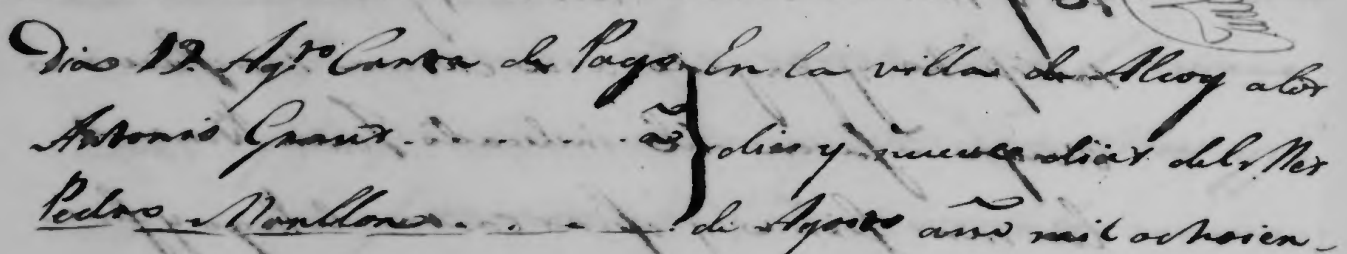 Dia 19. Agto. Carta de Pago } En la villa de Alcoy a los
Antonio Graus . . . . . . . . a } dies y nueve dias del Mes
Pedro Monllor . . . . . . } de Agosto año mil ochocien-